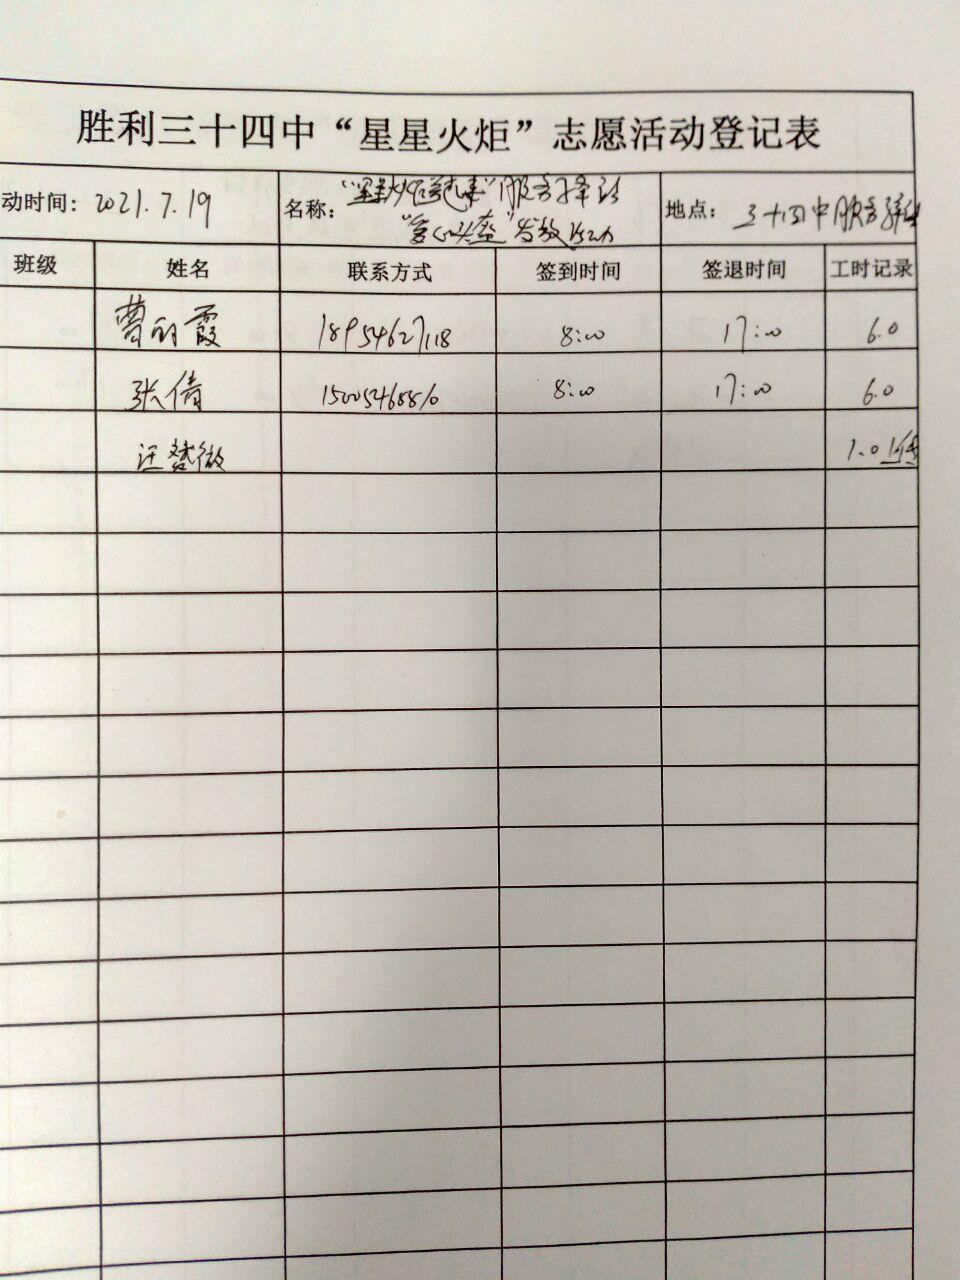 胜利三十四中“星星火炬”志愿活动登记表
动时间：2021.7.19 名称：“星星火炬 ”服务 地点：三十四中服务
“爱心 ”发放活动
班级 姓名 联系方式 签到时间 签退时间 工时记录
曹 霞 18954627118 8:00 17:00 6.0
张倩 8:00 17:00 6.0
汪 微 1.0